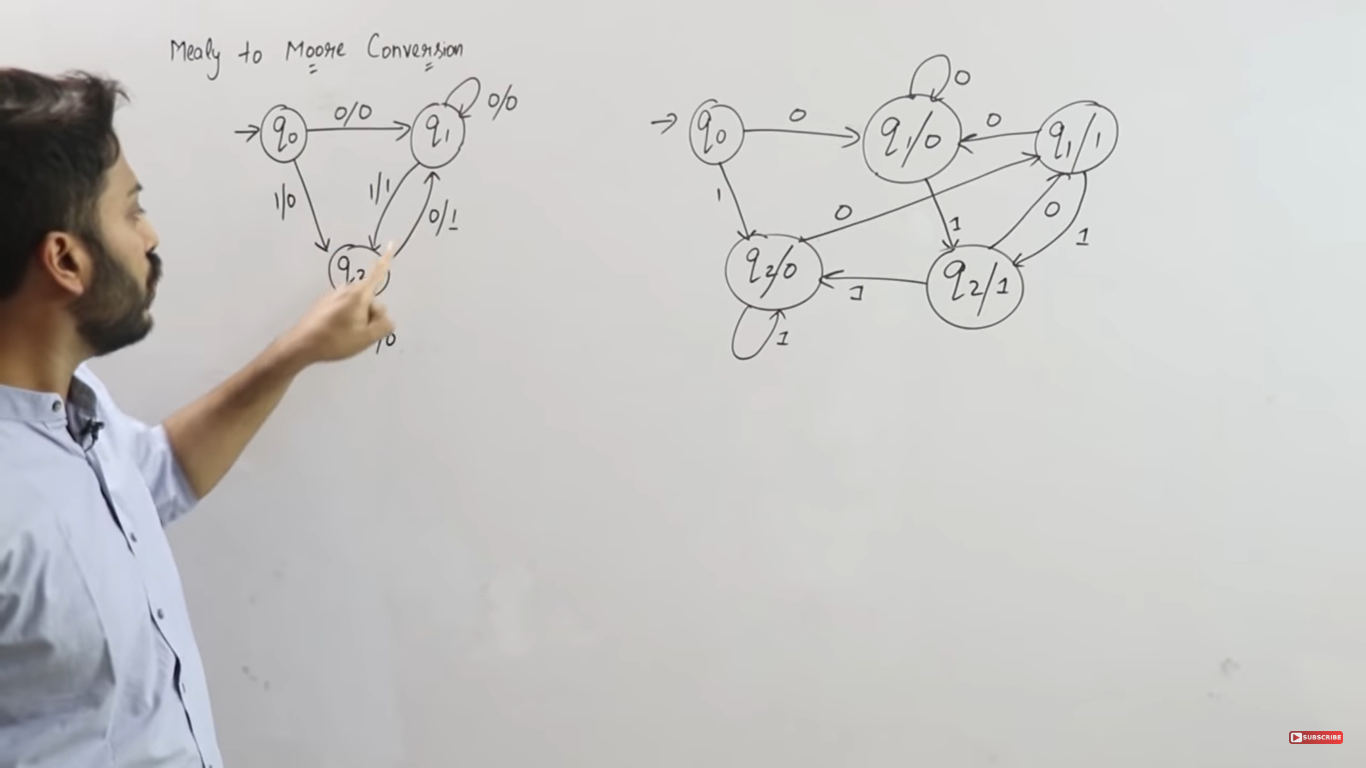 Mealy to Moore Conversion
q0
0/0
q1
0/0
1/0
1/1
0/1
q2
/0
q0
0
q1/0
0
0
q1/1
1
0
1
0
1
q2/0
1
q2/1
1
SUBSCRIBE